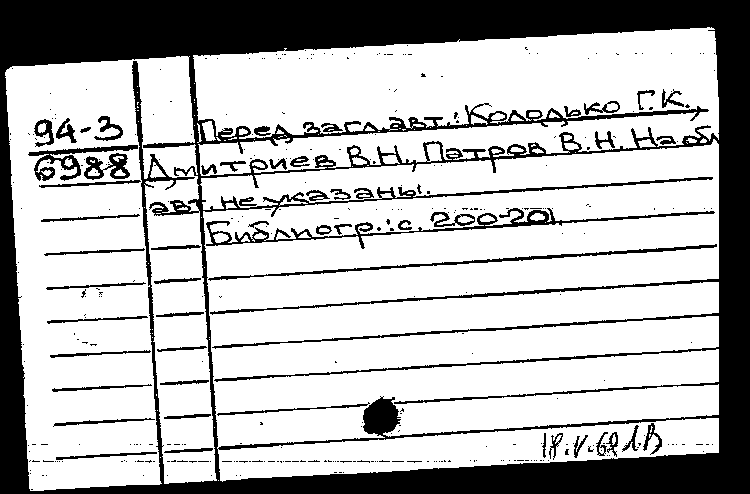 94-3
6988
Перед загл. авт.: Колодько Г.К.,
Дмитриев В.Н., Патров В.Н. На обл
авт. не указаны.
Библиогр.: с. 200-201.
18.V.62 Л.В